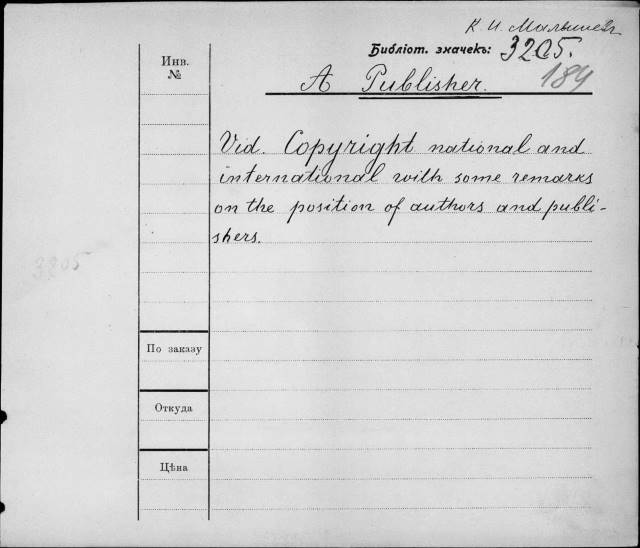 К. И. Малышев
Библіот. значекъ: 3205.
184
Инв.
№
A Publisher.
Vid. Copyright national and
international with some remarks
on the position of authors and publi-
shers.
3205
По заказу
Откуда
Цѣна